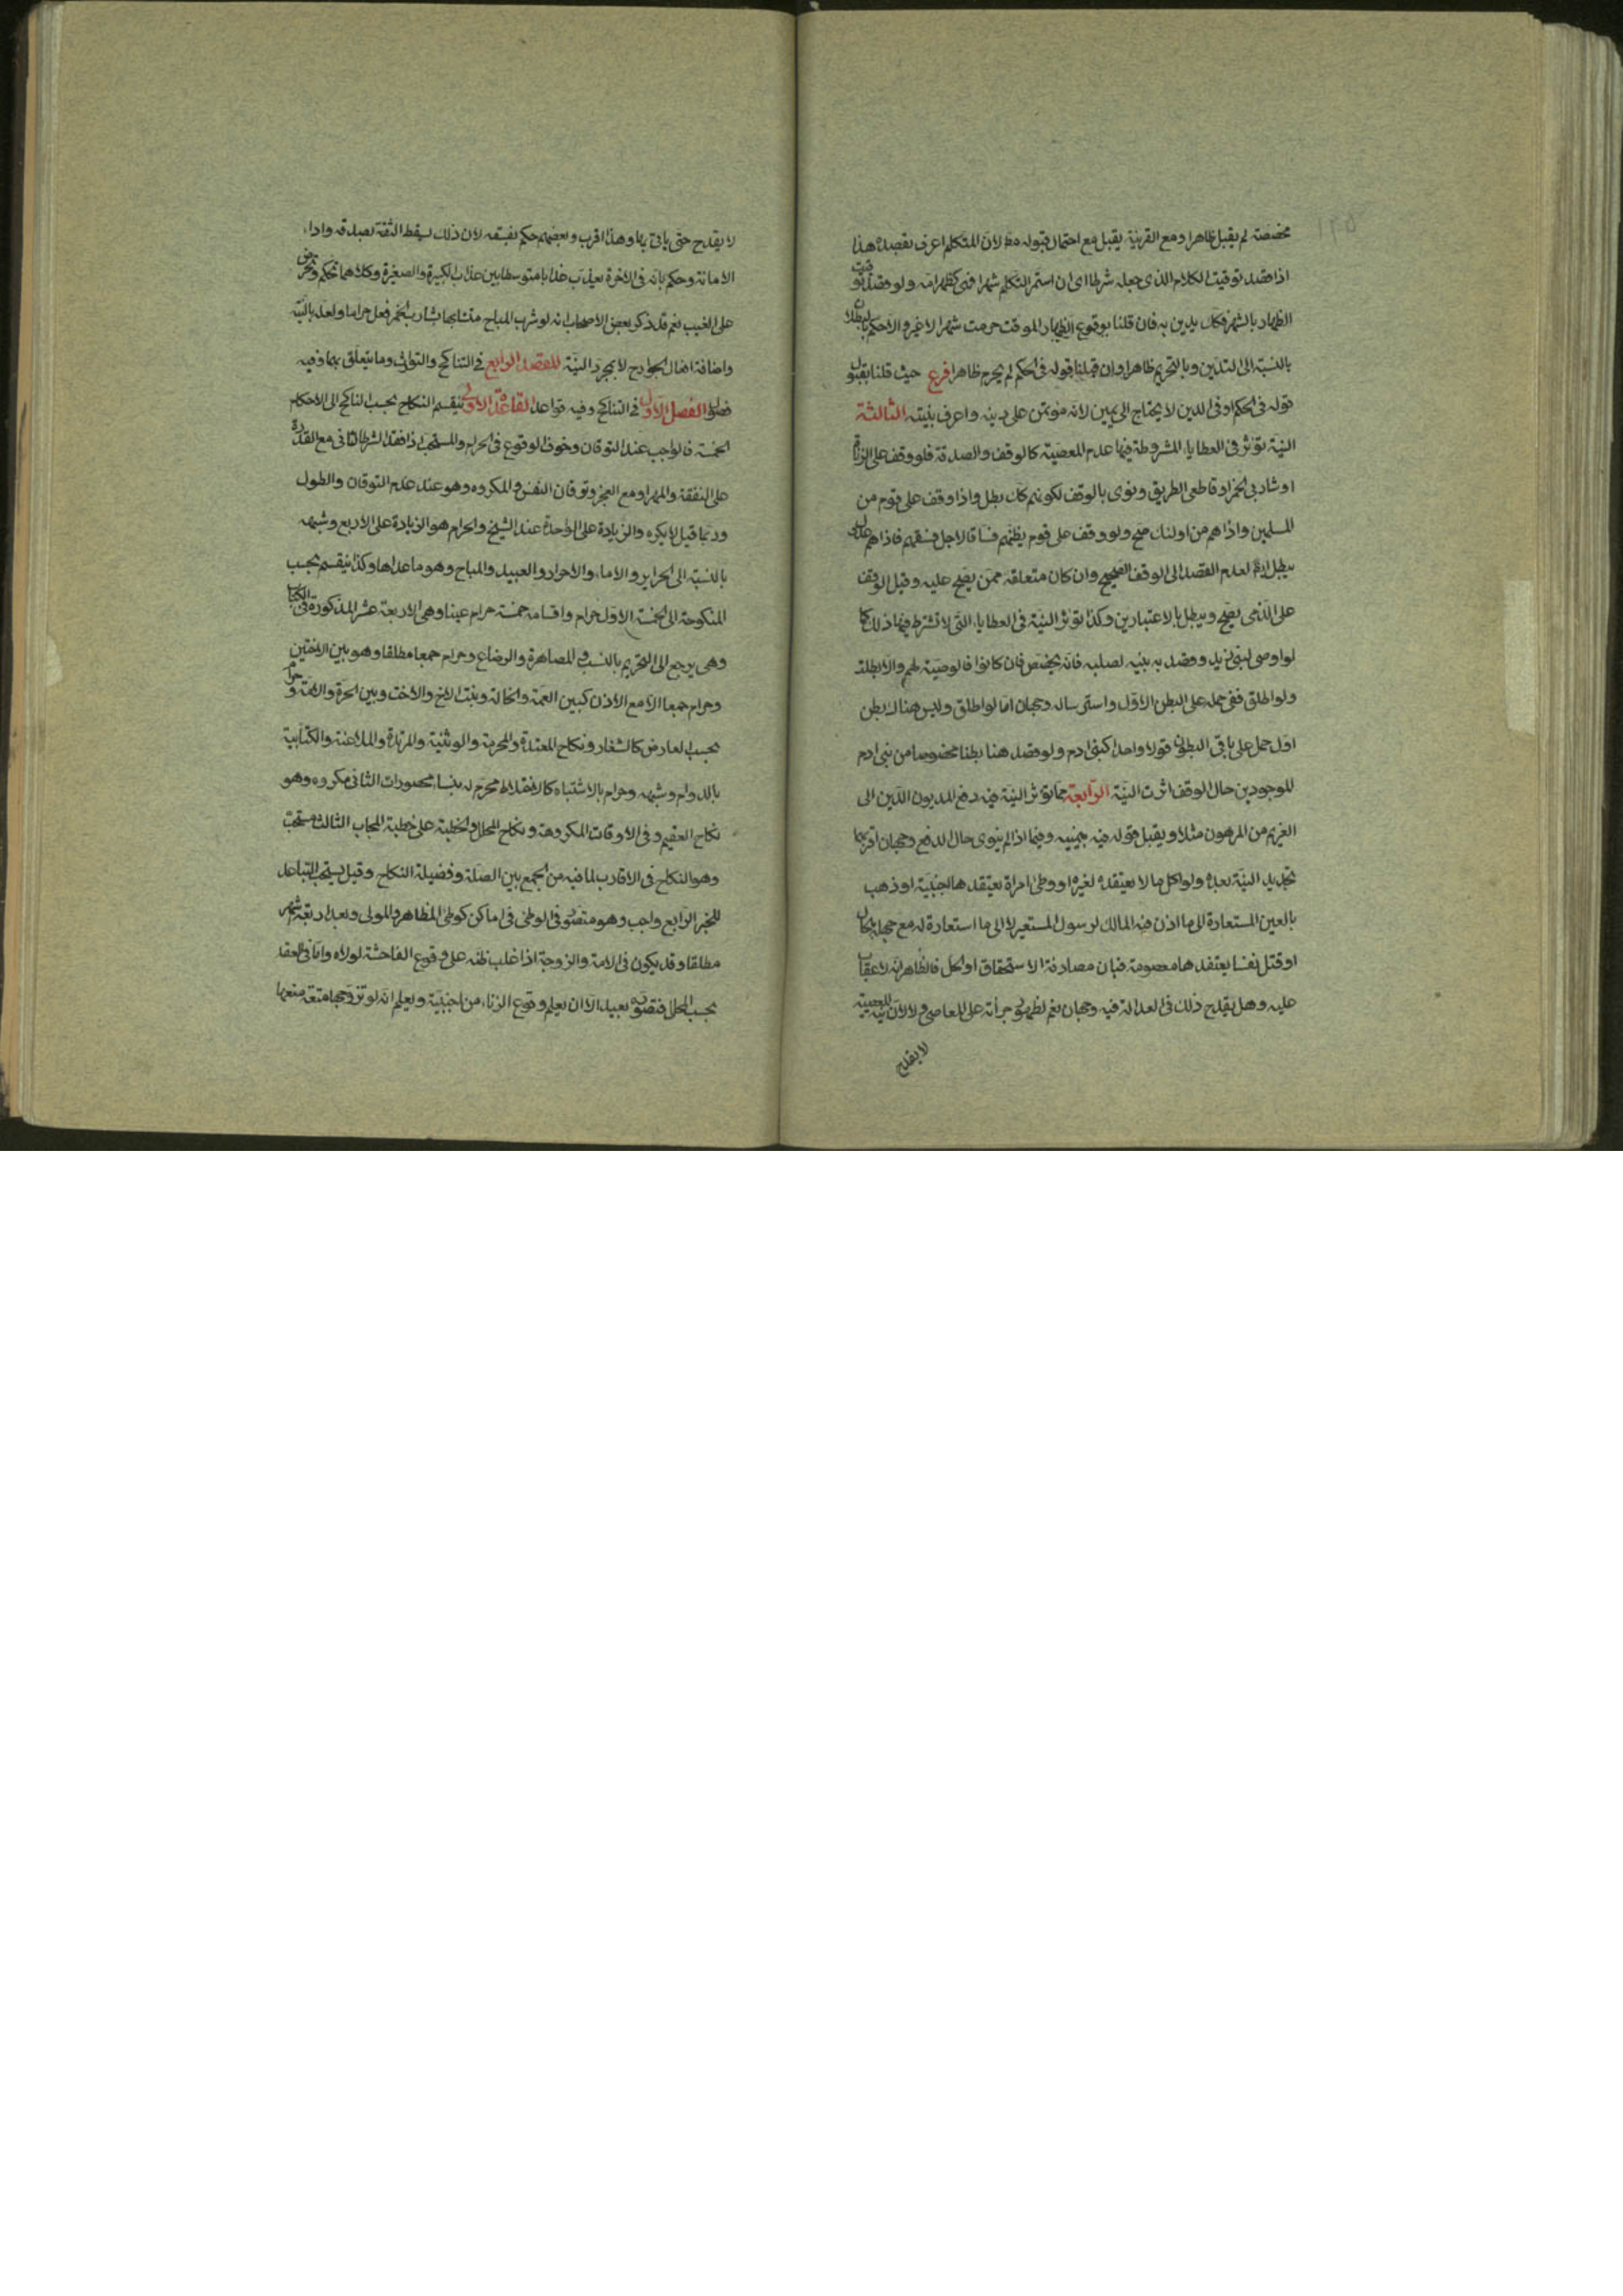 مخصصة لم يقبل ظاهرا ومع القرينة يقبل مع احتمال قبوله مط لان المتكلم اعرف بقصده هذا
اذا قصد توقيت الكلام الذى جعله شرطا اى ان استمر التكلم شهرا فهى كظهر امه ولو قصد توقيت
الظهار بالشهر فكان يدين به فان قلنا بوقوع الظهار الموقت حرمت شهرا لا غير والا حكم ببطلان
بالنسبة الى التدين وبالتحريم ظاهرا وان قبلنا قوله فى الحكم لم يحرم ظاهرا فرع حيث قلنا بقبول
قوله فى الحكم او فى الدين لا يحتاج الى يمين لانه مؤتمن على دينه واعرف بنيته الثالثة
النية تؤثر فى العطايا المشروطة فيها عدم المعصية كالوقف والصدقة فلو وقف على الزناة
او شاربى الخمر او قاطعى الطريق ونوى بالوقف لكونهم كك بطل واذا وقف على قوم من
المسلمين واذا هم من اولئك صح ولو وقف على قوم يظنهم فساقا لاجل فسقهم فاذا هم عدول
يبطل ايضا لعدم القصد الى الوقف الصحيح وان كان متعلقه ممن يصح عليه وقيل الوقف
على الذمى يصح ويبطل بالاعتبارين وكذا تؤثر النية فى العطايا التى لا تشترط فيها ذلك كما
لو اوصى لبنى زيد وقصد به بنيه لصلبه فانه يختص فان كانوا فالوصية لهم والا بطلت
ولو اطلق ففى حمله على البطن الاول واسترساله وجهان اما لو اطلق وليس هناك بطن
اول حمل على باقى البطون قولا واحدا كبنى ادم ولو قصد هنا بطنا مخصوصا من بنى ادم
الموجودين حال الوقف اثرت النية الرابعة مما تؤثر النية فيه دفع المديون الدين الى
الغريم من المرهون مثلا ويقبل قوله فيه بيمينه وفيما اذا لم ينوى حال الدفع وجهان اقربهما
تجديد النية بعده ولو اكل ما لا يعتقده لغيره او وطئ امراة يعتقدها اجنبية او ذهب
بالعين المستعارة الى ما اذن فيه المالك لرسول المستعير لا الى ما استعارة له مع جهله بحال
او قتل نفسا يعتقدها معصومة فبان مصادفة الاستحقاق او الحل فالظاهر انه لا عقاب
عليه وهل يقدح ذلك فى العدالة فيه وجهان نعم لظهور جرأته على المعاصى ولا لان نية المعصية
لا يقدح
لا يقدح حتى ياتى بها وهذا اقرب وبعضهم حكم بفسقه لان ذلك يسقط الثقة بصدقه واداء
الامانة وحكم بانه فى الاخرة يعذب عذابا متوسطا بين عذاب الكبيرة والصغيرة وكلاهما تحكم وتخرص
على الغيب نعم قد ذكر بعض الاصحاب انه لو شرب المباح متشابها بشارب الخمر فعل حراما ولعله بالنية
واضافة افعال الجوارح لا بمجرد النية المقصد الرابع فى التناكح والتوارث وما يتعلق بهما وفيه
فصول الفصل الاول فى التناكح وفيه قواعد القاعدة الاولى ينقسم النكاح بحسب الناكح الى الاحكام
الخمسة فالواجب عند التوقان وخوف الوقوع فى الحرام والمستحب اذا فقد الشرط الثانى مع القدرة
على النفقة والمهر او مع العجز وتوقان النفس والمكروه وهو عند عدم التوقان والطول
وربما قيل لا يكره والزيادة على الواحدة عند الشيخ والحرام هو الزيادة على الاربع وشبهه
بالنسبة الى الحراير والاماء والاحرار والعبيد والمباح وهو ما عداها وكذا ينقسم بحسب
المنكوحة الى الخمسة الاول حرام واقسامه خمسة حرام عينا وهى الاربعة عشر المذكورة فى الكتاب
وهى يرجع الى التحريم بالنسب والمصاهرة والرضاع وحرام جمعا مطلقا وهو بين الاختين
وحرام جمعا الا مع الاذن كبين العمة والخالة وبنت الاخ والاخت وبين الحرة والامة وحرام
بحسب العارض كالشغار ونكاح المعتدة والمحرمة والوثنية والمرتدة والملاعنة والكتابية
بالدوام وشبهه وحرام بالاشتباه كالاختلاط محرم له بنساء محصورات الثانى مكروه وهو
نكاح العقيم وفى الاوقات المكروهة ونكاح المحلل والخطبة على خطبة المجاب الثالث مستحب
وهو النكاح فى الاقارب لما فيه من الجمع بين الصلة وفضيلة النكاح وقيل يستحب التباعد
للخبر الرابع واجب وهو متصور فى الوطى فى اماكن كوطى المظاهر والمولى وبعد اربعة اشهر
مطلقا وقد يكون فى الامة والزوجة اذا غلب ظنه على وقوع الفاحشة لولاه واما فى العقد
بحسب المحل فتصوره بعيد الا ان يعلم وقوع الزناء من اجنبية ويعلم انه لو تزوجها متعة منعها